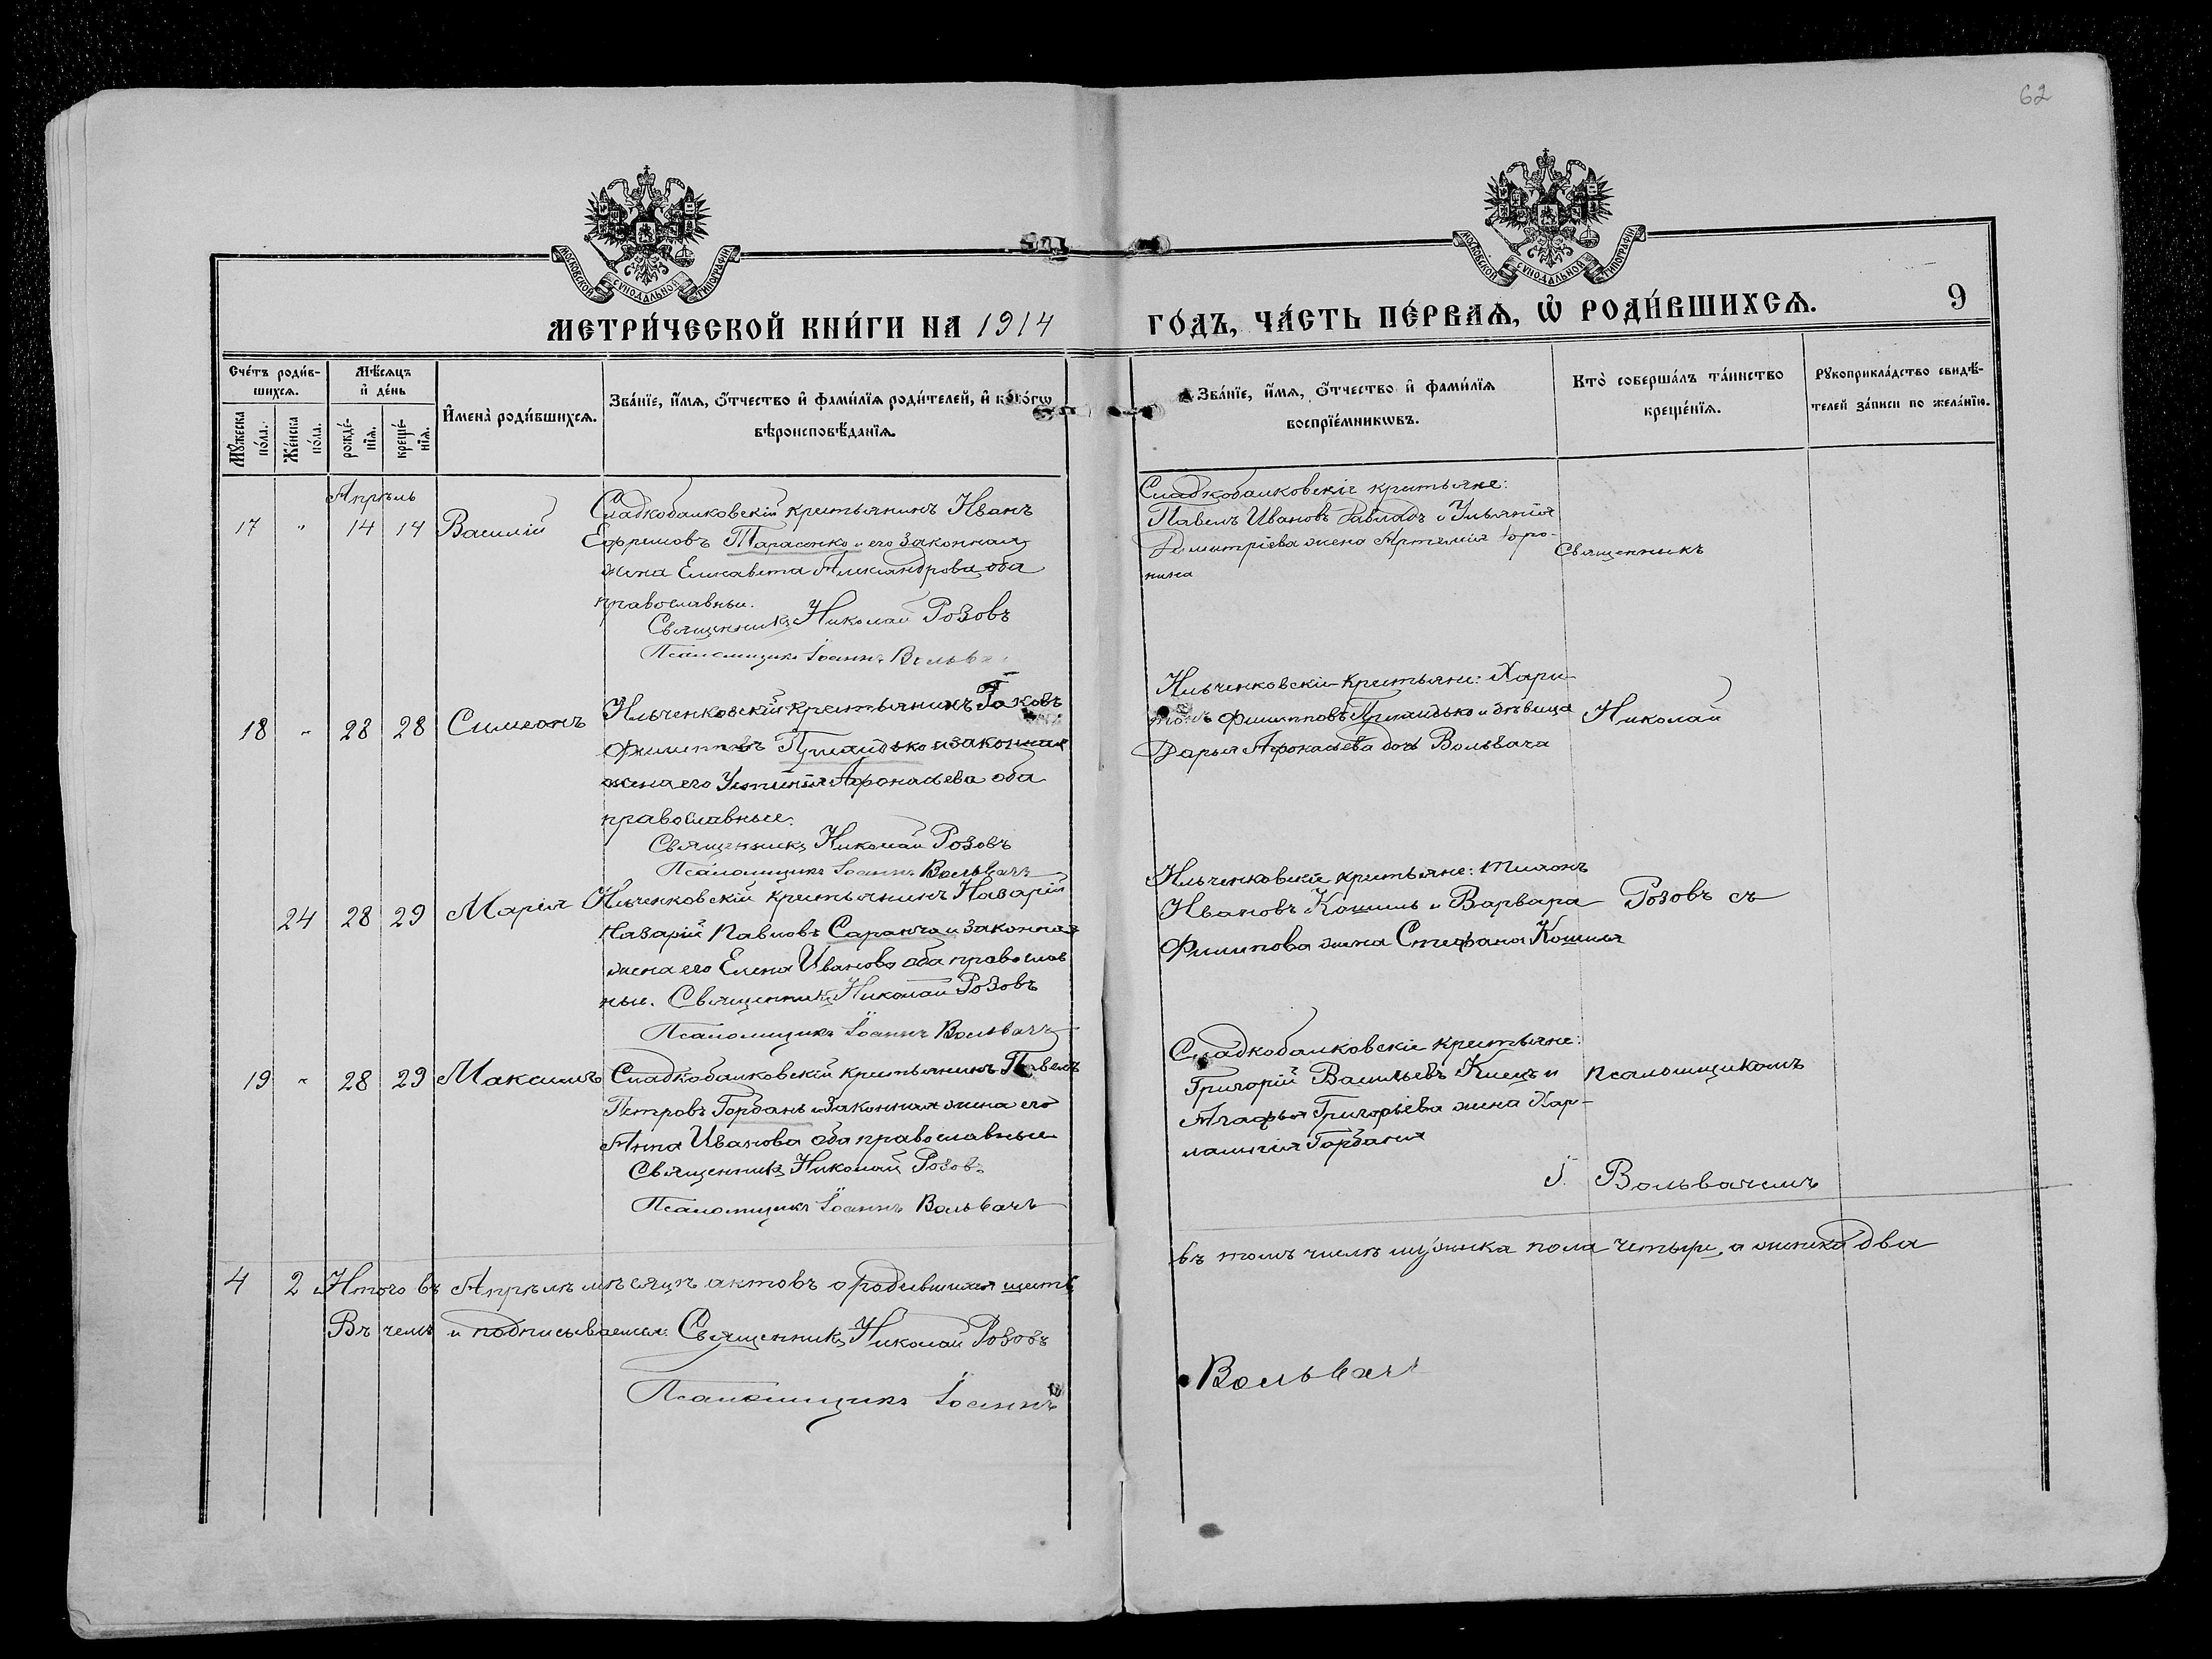 62
МОСКОВСКОЙ СѴНОДАЛЬНОЙ ТИПОГРАФІИ
МОСКОВСКОЙ СѴНОДАЛЬНОЙ ТИПОГРАФІИ
МЕТРИ́ЧЕСКОЙ КНИ́ГИ НА 1914 ГО́ДЪ, ЧА́СТЬ ПЕ́РВАѦ, Ѽ РОДИ́ВШИХСѦ. 9
Сче́тъ роди́в-
шихсѧ.
Мꙋ́жеска
по́ла.
Же́нска
по́ла.
Мѣ́сѧцъ
и҆ де́нь
рожде́-
нїѧ.
креще́-
нїѧ.
И҆мена̀ роди́вшихсѧ.
Зва́нїе, и҆́мѧ, ѻ҆́тчество и҆ фами́лїѧ роди́телей, и҆ како́гѡ
вѣроисповѣ́данїѧ.
Зва́нїе, и҆́мѧ, ѻ҆́тчество и҆ фами́лїѧ
воспрїе́мникѡвъ.
Кто̀ соверша́лъ та́инство
креще́нїѧ.
Рꙋкоприкла́дство свидѣ́-
телей за́писи по жела́нїю.
Апрѣль
17 " 14 14 Василій
Сладкобалковскій крестьянинъ Иванъ
Ефремовъ Тарасенко и его законная
жена Елисавета Александрова оба
православные.
Священникъ Николай Розовъ
Псаломщикъ Іоаннъ Вольва
Сладкобалковскіе крестьяне:
Павелъ Ивановъ и Ульянія
Димитріева жена Артемія
нина
Священникъ
18 " 28 28 Симеонъ
Ильченковскій крестьянинъ Іаковъ
Филипповъ и законная
жена его Устинія Афонасьева оба
православные.
Священникъ Николай Розовъ
Псаломщикъ Іоаннъ Вольвачъ
Ильченковскіе крестьяне: Хари-
тонъ Филипповъ и дѣвица
Дарья Афонасьева дочь Вольвача
Николай
24 28 29 Марія
Ильченковскій крестьянинъ Назарій
Назарій Павловъ Саранча и законная
жена его Елена Иванова оба православ
ные. Священникъ Николай Розовъ
Псаломщикъ Іоаннъ Вольвачъ
Ильченковскіе крестьяне: Тихонъ
Ивановъ Кошиль и Варвара
Филипова жена Стефана Кошиля
Розовъ съ
19 " 28 29 Максимъ
Сладкобалковскій крестьянинъ Павелъ
Петровъ Горбань и законная жена его
Анна Иванова оба православные
Священникъ Николай Розовъ
Псаломщикъ Іоаннъ Вольвачъ
Сладкобалковскіе крестьяне:
Григорій Васильевъ и
Агафья Григорьева жена Хар-
лампія Горбаня
псаломщикомъ
І. Вольвачемъ
4 2 Итого въ Апрѣлѣ мѣсяцѣ актовъ о родившихся шесть
въ томъ числѣ мужска пола четыре, а женска два
Въ чемъ и подписываемся: Священникъ Николай Розовъ
Псаломщикъ Іоаннъ Вольвачъ